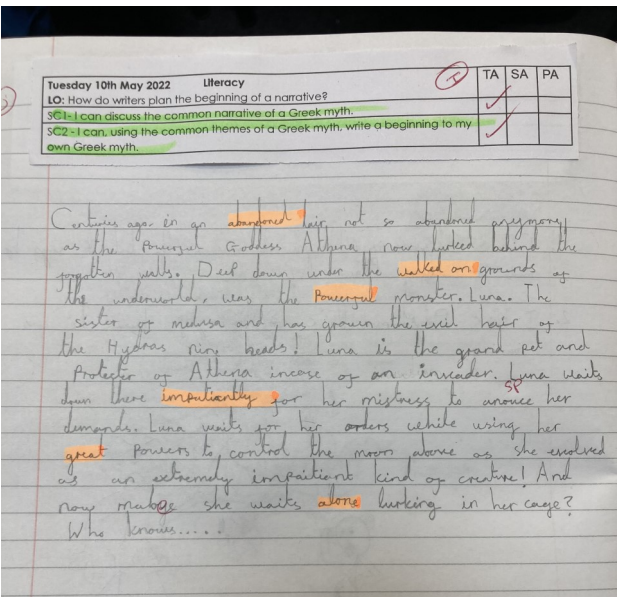 Tuesday 10th May 2022 Literacy
TA SA PA
LO: How do writers plan the beginning of a narrative?
SC1- I can discuss the common narrative of a Greek myth.
SC2 - I can, using the common themes of a Greek myth, write a beginning to my
own Greek myth.
Centuries ago, in an abandoned lair, not so abandoned anymore,
as the Powerful Goddess Athena now lurked behind the
forgotten walls. Deep down under the walked on grounds of
the underworld, was the Powerful monster. Luna. The
sister of medusa and has grown the evil hair of
the Hydras nine heads! Luna is the grand pet and
Protecter of Athena incase of an invader. Luna waits
SP
down there impatiently for her mistress to anouce her
demands. Luna waits for her orders while using her
great Powers to control the moon above as she evolved
as an extremely impaitiant kind of creature! And
now she waits alone lurking in her cage?
Who knows.....